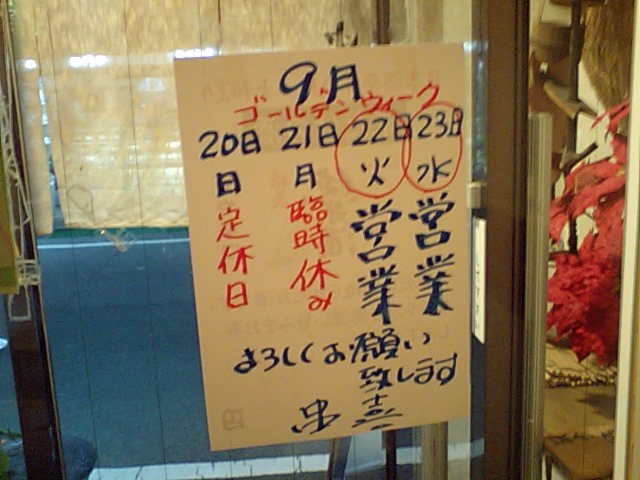 9月
ゴールデンウィーク
20日 21日 22日 23日
日 月 火 水
定休日 臨時休み 営業 営業
よろしくお願い
致します